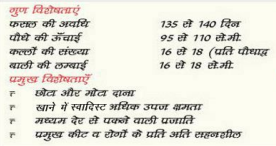 गुण विशेषताएं
फसल की अवधि 135 से 140 दिन
पौधे की ऊँचाई 95 से 110 से.मी.
कल्लों की संख्या 16 से 18 (प्रति पौधाद्ध
बाली की लम्बाई 16 से 18 से.मी.
प्रमुख विशेषताएँ
छोटा और मोटा दाना
खाने में स्वादिस्ट अधिक उपज क्षमता
मध्यम देर से पकने वाली प्रजाति
प्रमुख कीट व रोगों के प्रति अति सहनशील